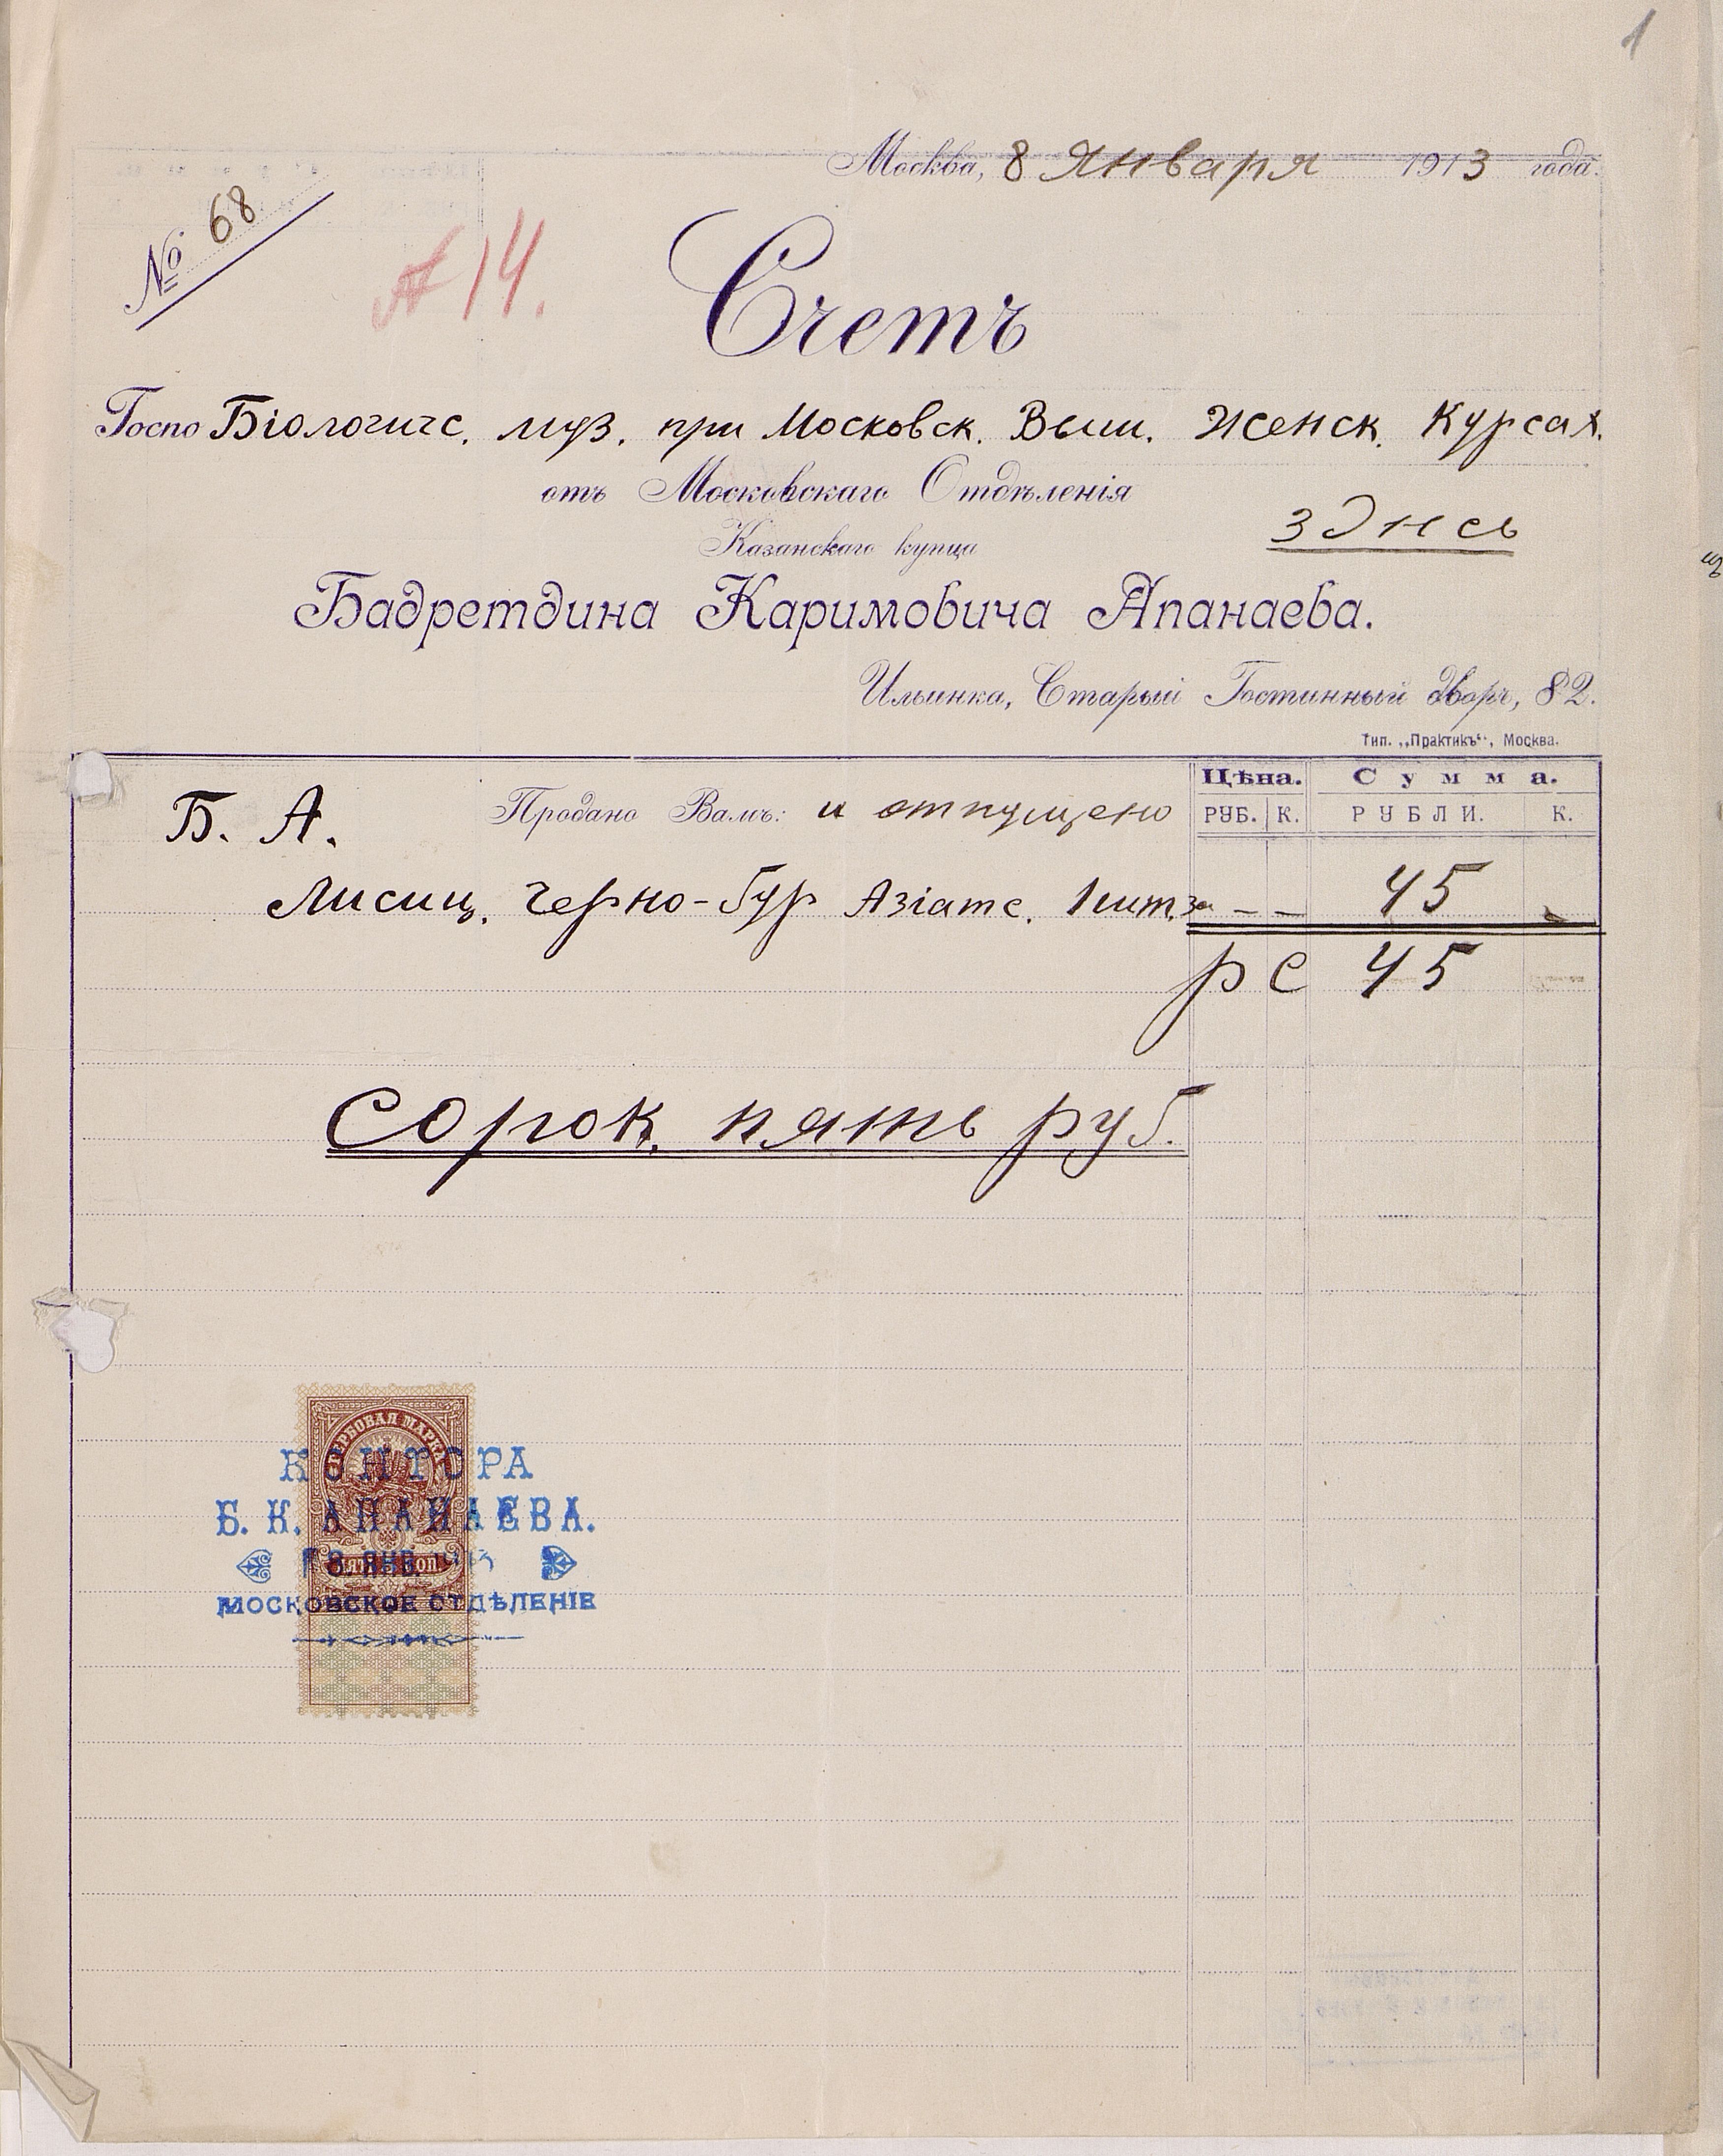 1
Москва, 8 Января 1913 года.
№ 68
14.
Счетъ
Госпо Біологичс. муз. при Московск. Высш. Женск. Курсах.
отъ Московскаго Отдѣленія
здѣсь
Казанскаго купца
Бадретдина Каримовича Апанаева.
Ильинка, Старый Гостинный дворъ, 82.
Тип. „Практикъ“, Москва.
Цѣна. Сумма.
Б. А. Продано Вамъ: и отпущено РУБ. К. РУБЛИ. К.
Лисиц. Черно-бур Азіатс. 1 шт. за - - 45
рс 45
Сорок. пять руб.
ГЕРБОВАЯ МАРКА
КОНТОРА
Б. К. АПАНАЕВА.
8. ЯНВ. 1913
МОСКОВСКОЕ ОТДѢЛЕНІЕ